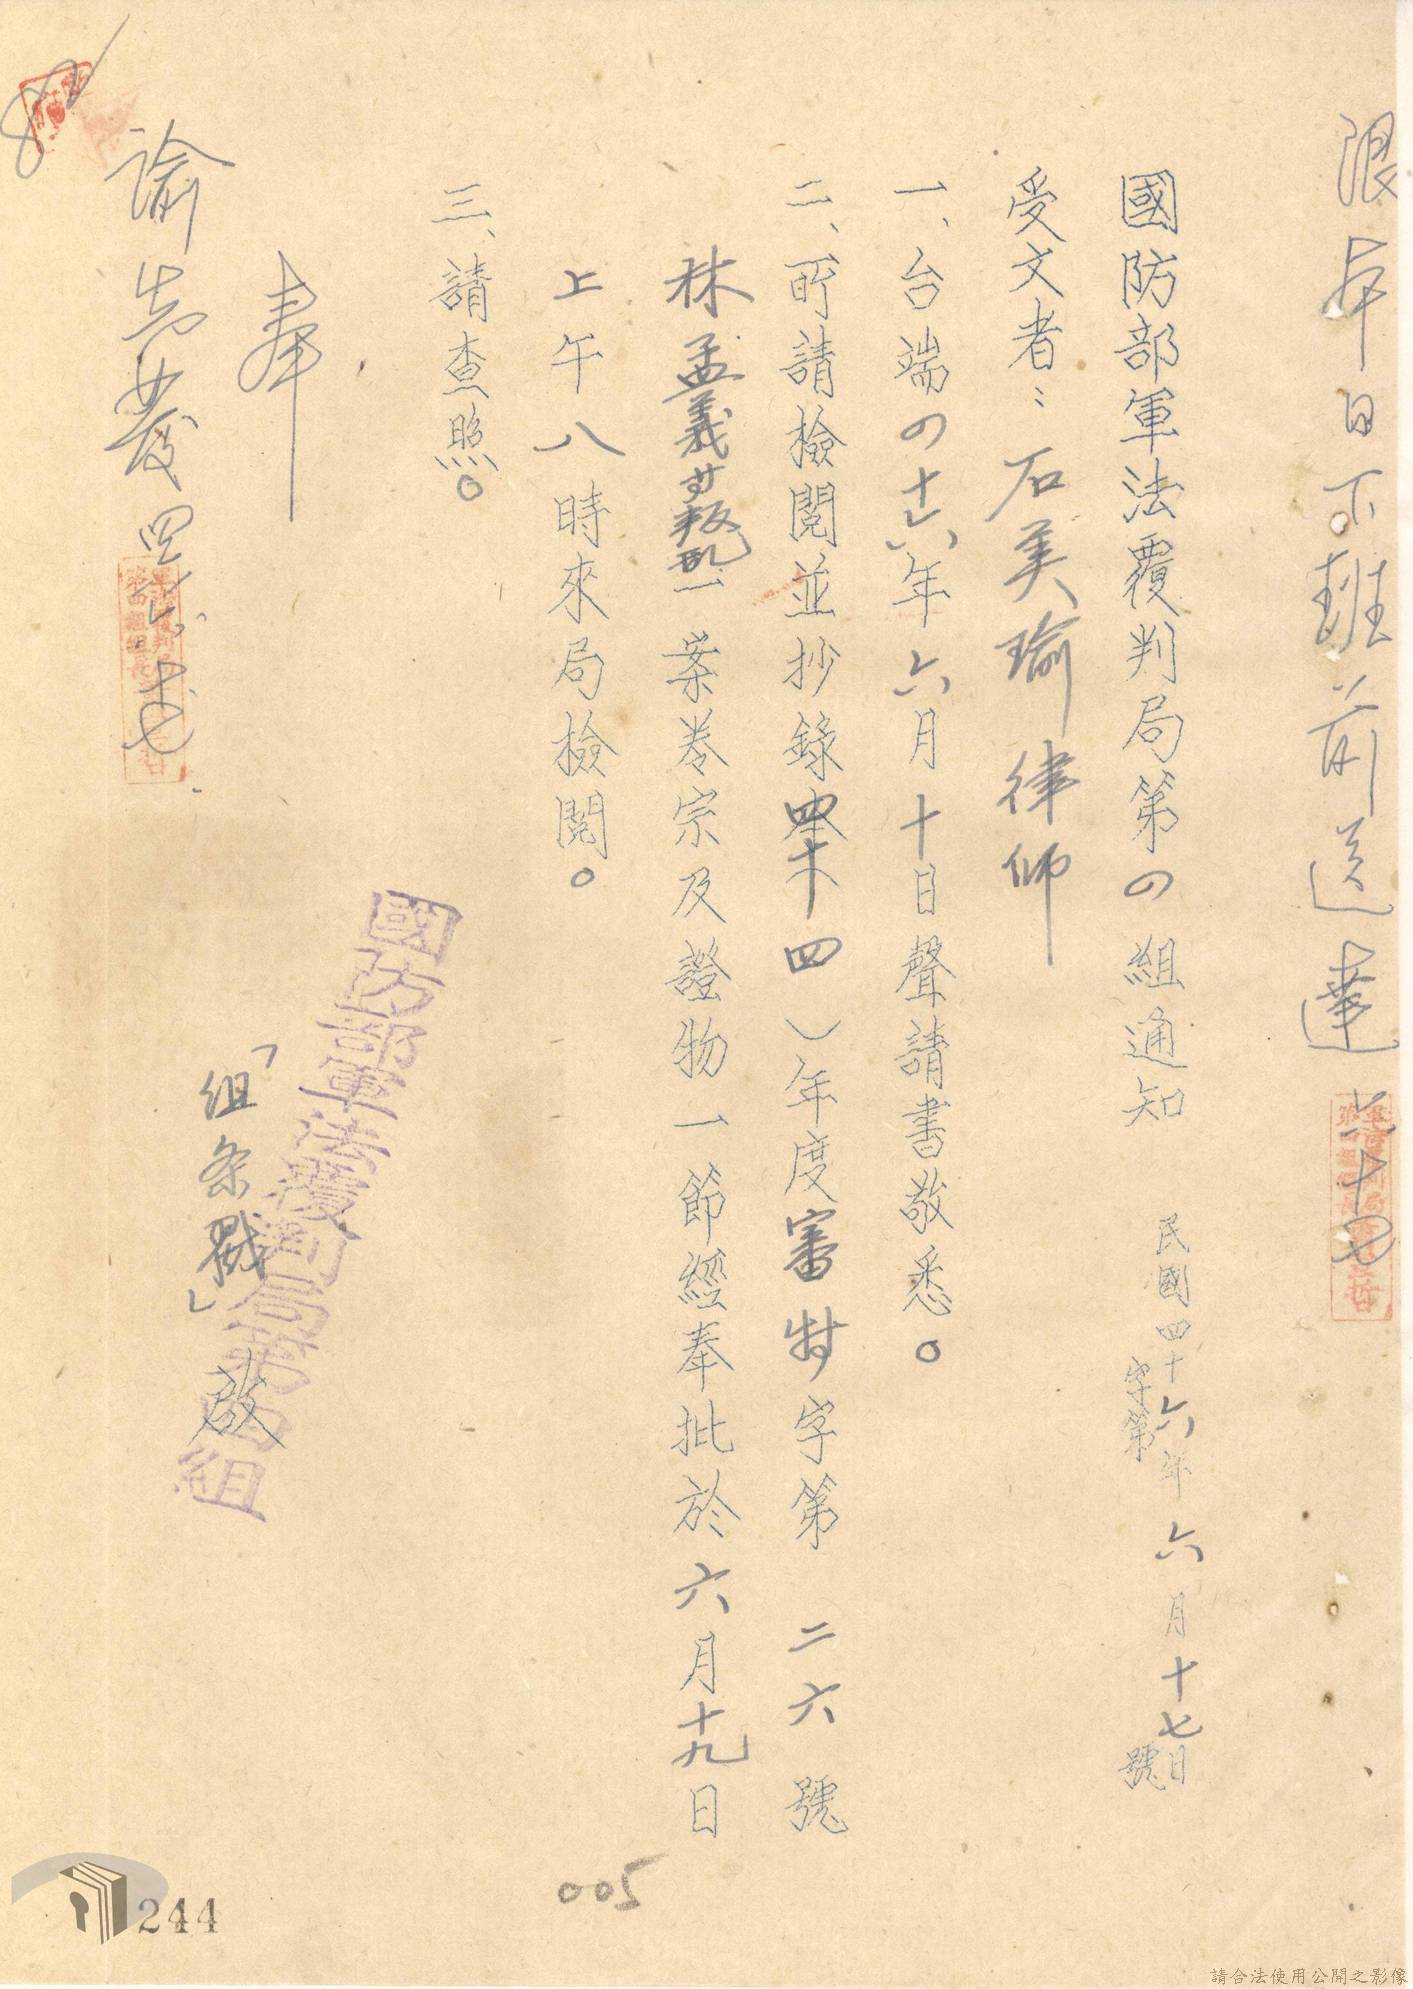 限本日下班前送達 六、十七
國防部軍法覆判局第四組通知
民國四十六年六月十七日
字第 號
受文者：石美瑜律師
一、台端四十六年六月十日聲請書敬悉。
二、所請檢閱並抄錄四十四）年度審特字第二六號
林孟義等叛亂一案卷宗及證物一節經奉批於六月十九日
上午八時來局檢閱。
三、請查照。
國防部軍法覆判局第四組
「組条戳」啟
奉
諭先發
005
244
請合法使用公開之影像